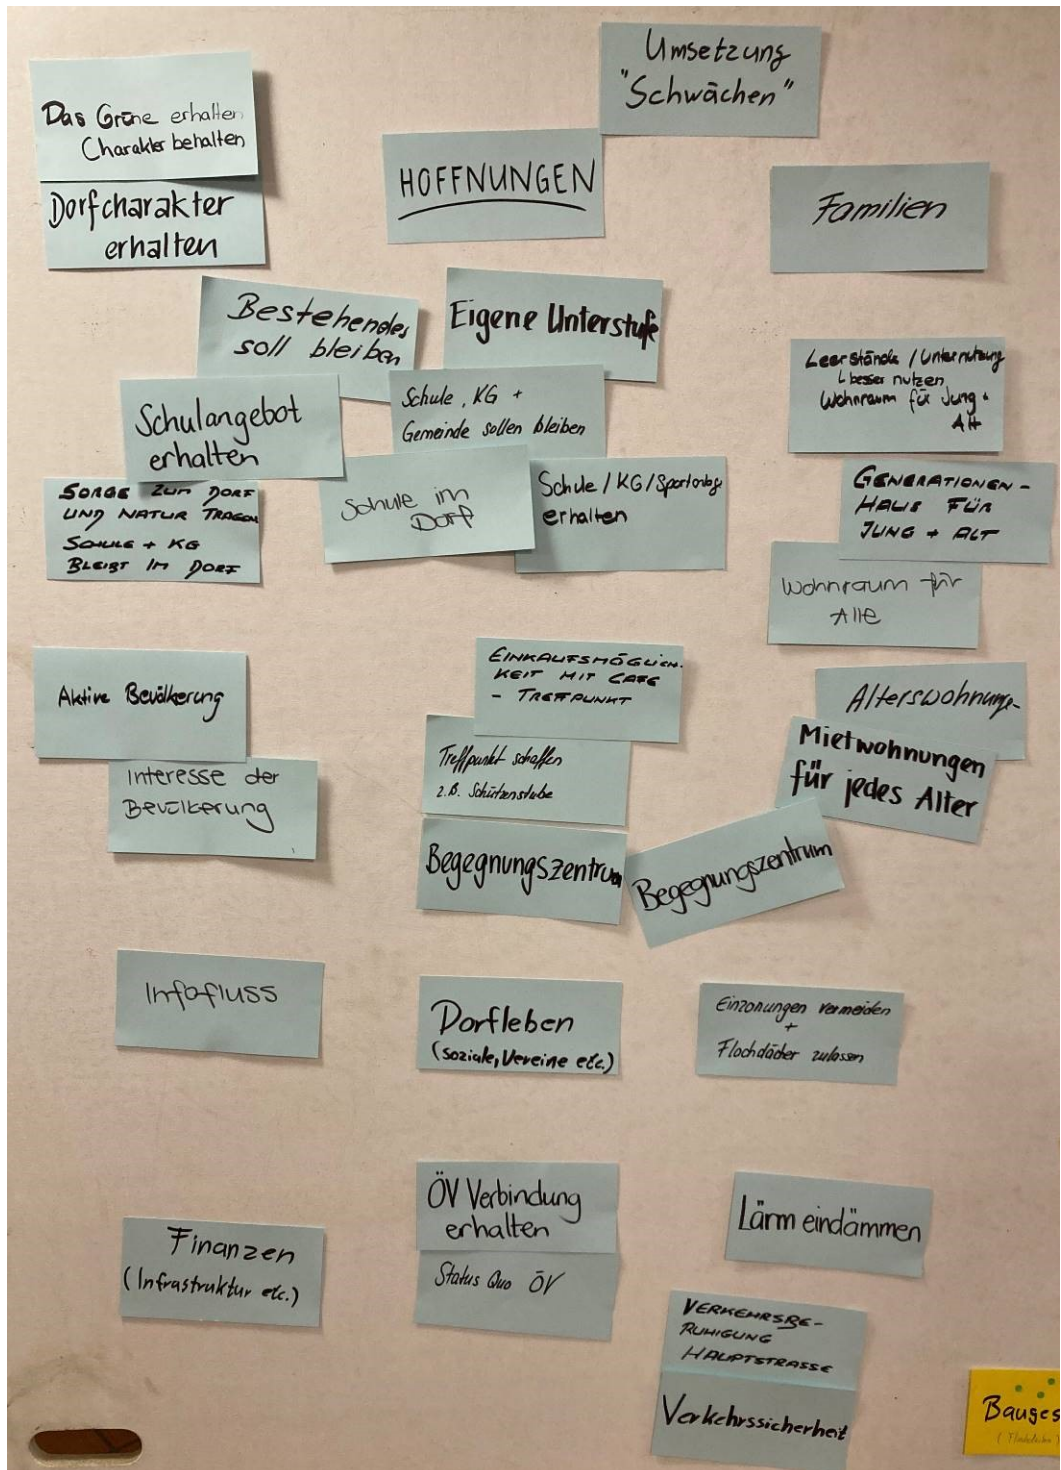 Umsetzung
"Schwächen"
Das Grüne erhalten
Charakter behalten
Dorfcharakter
erhalten
HOFFNUNGEN
Familien
Bestehendes
soll bleiben
Eigene Unterstufe
Schulangebot
erhalten
Schule, KG +
Gemeinde sollen bleiben
SORGE ZUM DORF
UND NATUR TRAGEN
SCHULE + KG
BLEIBT IM DORF
Schule im
Dorf
Schule / KG / Sportanlage
erhalten
Leerstände / Unternutzung
besser nutzen
Wohnraum für Jung +
Alt
GENERATIONEN-
HAUS FÜR
JUNG + ALT
Wohnraum für
Alle
Aktive Bevölkerung
Interesse der
Bevölkerung
EINKAUFSMÖGLICH-
KEIT MIT CAFE
- TREFFPUNKT
Treffpunkt schaffen
z.B. Schützenstube
Begegnungszentrum
Begegnungszentrum
Alterswohnunge-
Mietwohnungen
für jedes Alter
Infofluss
Dorfleben
(soziale, Vereine etc.)
Einzonungen vermeiden
+
Flachdächer zulassen
Finanzen
(Infrastruktur etc.)
ÖV Verbindung
erhalten
Status Quo ÖV
Lärm eindämmen
VERKEHRSBE-
RUHIGUNG
HAUPTSTRASSE
Verkehrssicherheit
Bauges